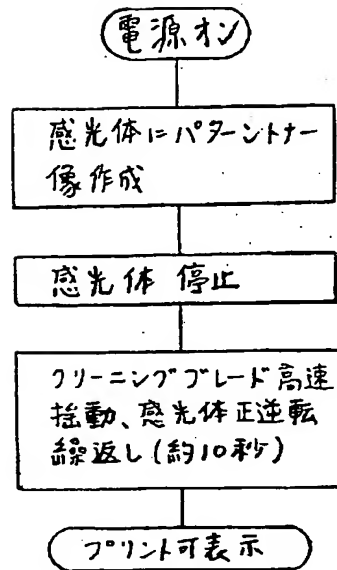 電源オン
感光体にパターントナー
像作成
感光体 停止
クリーニングブレード高速
揺動、感光体正逆転
繰返し(約10秒)
プリント可表示